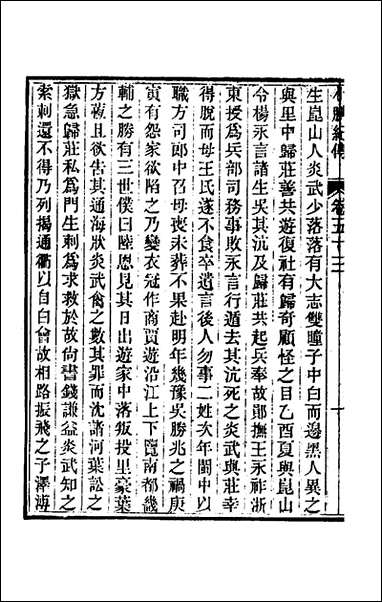 小腆紀傳 卷五十三 十
生崑山人炎武少落落有大志雙瞳子中白而邊黑人異之
與里中歸莊善共遊復社有歸奇顧怪之目乙酉夏與崑山
令楊永言諸生吳其沆及歸莊共起兵奉故鄖撫王永祚浙
東授爲兵部司務事敗永言行遁去其沆死之炎武與莊幸
得脫而母王氏遂不食卒遺言後人勿事二姓次年閩中以
職方司郎中召母喪未葬不果赴明年幾豫吳勝兆之禍庚
寅有怨家欲陷之乃變衣冠作商賈遊沿江上下覽南都畿
輔之勝有三世僕曰陸恩見其日出遊家中落叛投里豪葉
方藹且欲告其通海狀炎武禽之數其罪而沈諸河葉訟之
獄急歸莊私爲門生刺爲求救於故尚書錢謙益炎武知之
索刺還不得乃列揭通衢以自白會故相路振飛之子澤溥